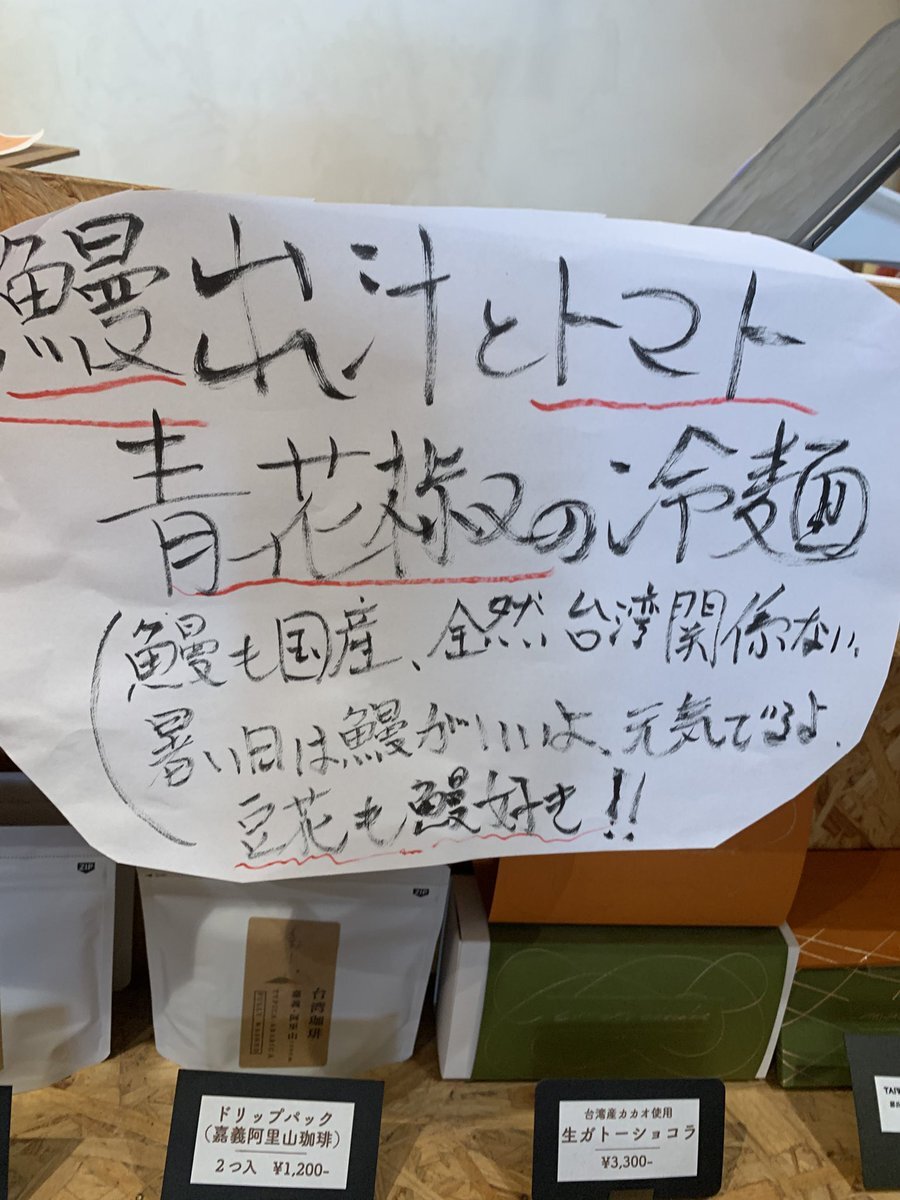 鰻出汁とトマト
青花椒の冷麺
(鰻も国産、全然台湾関係ない、
暑い日は鰻がいいよ、元気でるよ、
豆花も鰻好き!!
ZIP
ZIP
台湾珈琲
嘉義・阿里山
TYPICA ARABICA
FULLY WASHED
ドリップパック
(嘉義阿里山珈琲)
2つ入 ¥1,200-
台湾産カカオ使用
生ガトーショコラ
¥3,300-